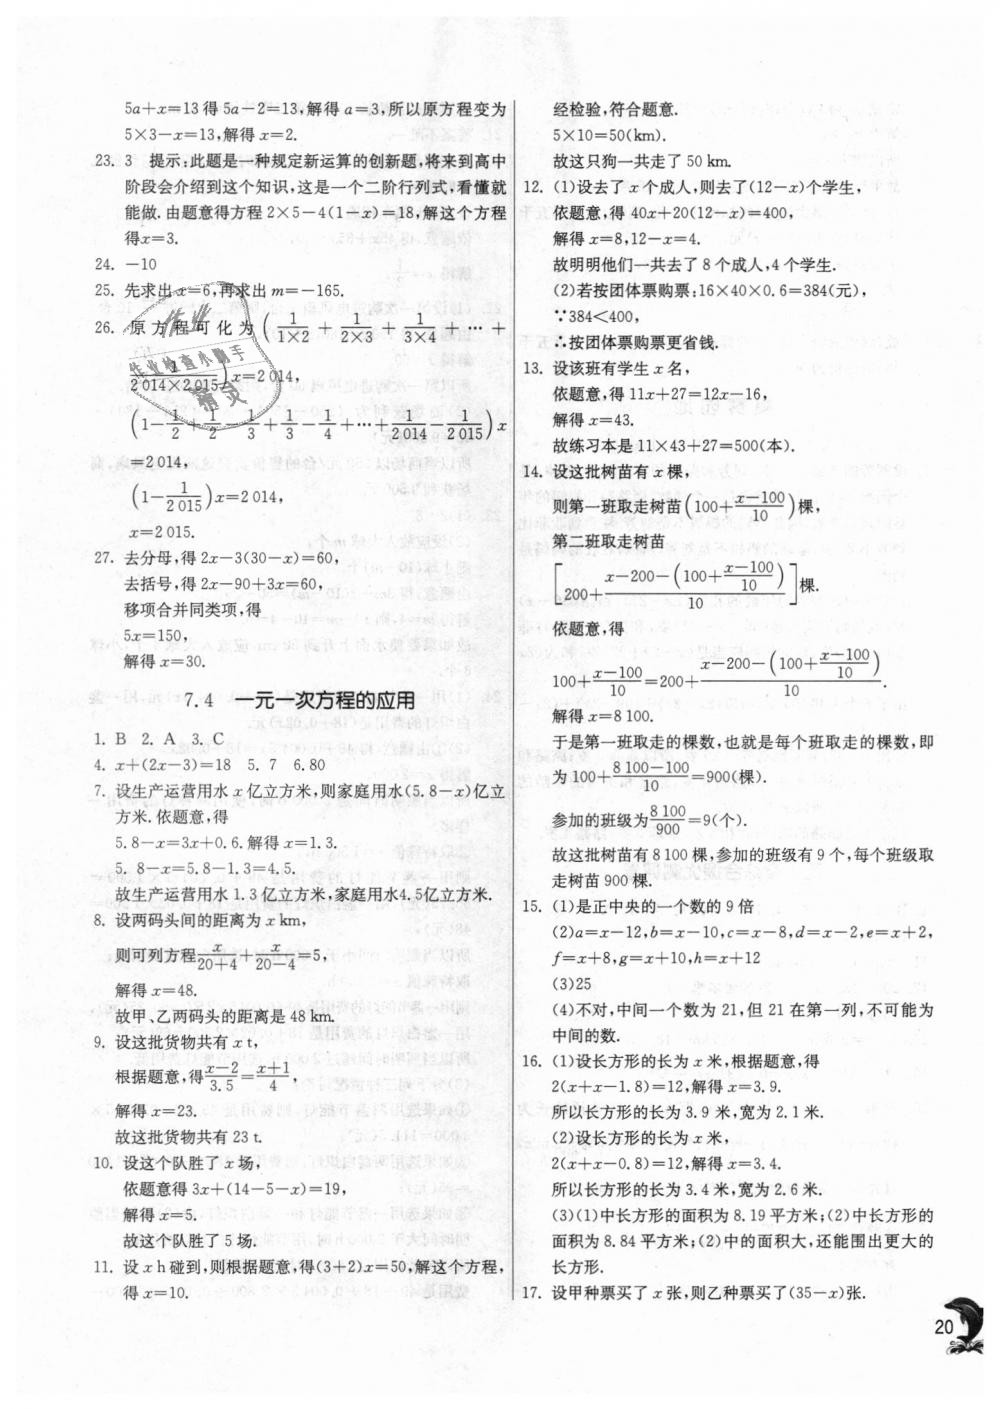 5a+x=13得5a-2=13,解得a=3,所以原方程变为
5×3-x=13,解得x=2.
23. 3 提示:此题是一种规定新运算的创新题,将来到高中
阶段会介绍到这个知识,这是一个二阶行列式,看懂就
能做.由题意得方程2×5-4(1-x)=18,解这个方程
得x=3.
24. -10
25. 先求出x=6,再求出m=-165.
26. 原方程可化为(1/(1×2)+1/(2×3)+1/(3×4)+⋯+
1/(2 014×2 015))x=2 014,
(1-1/2+1/2-1/3+1/3-1/4+⋯+1/2 014-1/2 015)x
=2 014,
(1-1/2 015)x=2 014,
x=2 015.
27. 去分母,得2x-3(30-x)=60,
去括号,得2x-90+3x=60,
移项合并同类项,得
5x=150,
解得x=30.
7.4 一元一次方程的应用
1. B 2. A 3. C
4. x+(2x-3)=18 5. 7 6. 80
7. 设生产运营用水x亿立方米,则家庭用水(5.8-x)亿立
方米.依题意,得
5.8-x=3x+0.6.解得x=1.3.
5.8-x=5.8-1.3=4.5.
故生产运营用水1.3亿立方米,家庭用水4.5亿立方米.
8. 设两码头间的距离为x km,
则可列方程x/(20+4)+x/(20-4)=5,
解得x=48.
故甲、乙两码头的距离是48 km.
9. 设这批货物共有x t,
根据题意,得(x-2)/3.5=(x+1)/4.
解得x=23.
故这批货物共有23 t.
10. 设这个队胜了x场,
依题意得3x+(14-5-x)=19,
解得x=5.
故这个队胜了5场.
11. 设x h碰到,则根据题意,得(3+2)x=50,解这个方程,
得x=10.
经检验,符合题意.
5×10=50(km).
故这只狗一共走了50 km.
12. (1)设去了x个成人,则去了(12-x)个学生,
依题意,得40x+20(12-x)=400,
解得x=8,12-x=4.
故明明他们一共去了8个成人,4个学生.
(2)若按团体票购票:16×40×0.6=384(元),
∵384<400,
∴按团体票购票更省钱.
13. 设该班有学生x名,
依题意,得11x+27=12x-16,
解得x=43.
故练习本是11×43+27=500(本).
14. 设这批树苗有x棵,
则第一班取走树苗(100+(x-100)/10)棵,
第二班取走树苗
[200+(x-200-(100+(x-100)/10))/10]棵.
依题意,得
100+(x-100)/10=200+(x-200-(100+(x-100)/10))/10.
解得x=8 100.
于是第一班取走的棵数,也就是每个班取走的棵数,即
为100+(8 100-100)/10=900(棵).
参加的班级为8 100/900=9(个).
故这批树苗有8 100棵,参加的班级有9个,每个班级取
走树苗900棵.
15. (1)是正中央的一个数的9倍
(2)a=x-12,b=x-10,c=x-8,d=x-2,e=x+2,
f=x+8,g=x+10,h=x+12
(3)25
(4)不对,中间一个数为21,但21在第一列,不可能为
中间的数.
16. (1)设长方形的长为x米,根据题意,得
2(x+x-1.8)=12,解得x=3.9.
所以长方形的长为3.9米,宽为2.1米.
(2)设长方形的长为x米,
2(x+x-0.8)=12,解得x=3.4.
所以长方形的长为3.4米,宽为2.6米.
(3)(1)中长方形的面积为8.19平方米;(2)中长方形的
面积为8.84平方米;(2)中的面积大,还能围出更大的
长方形.
17. 设甲种票买了x张,则乙种票买了(35-x)张.
20
作业
作业检查小助手
精灵